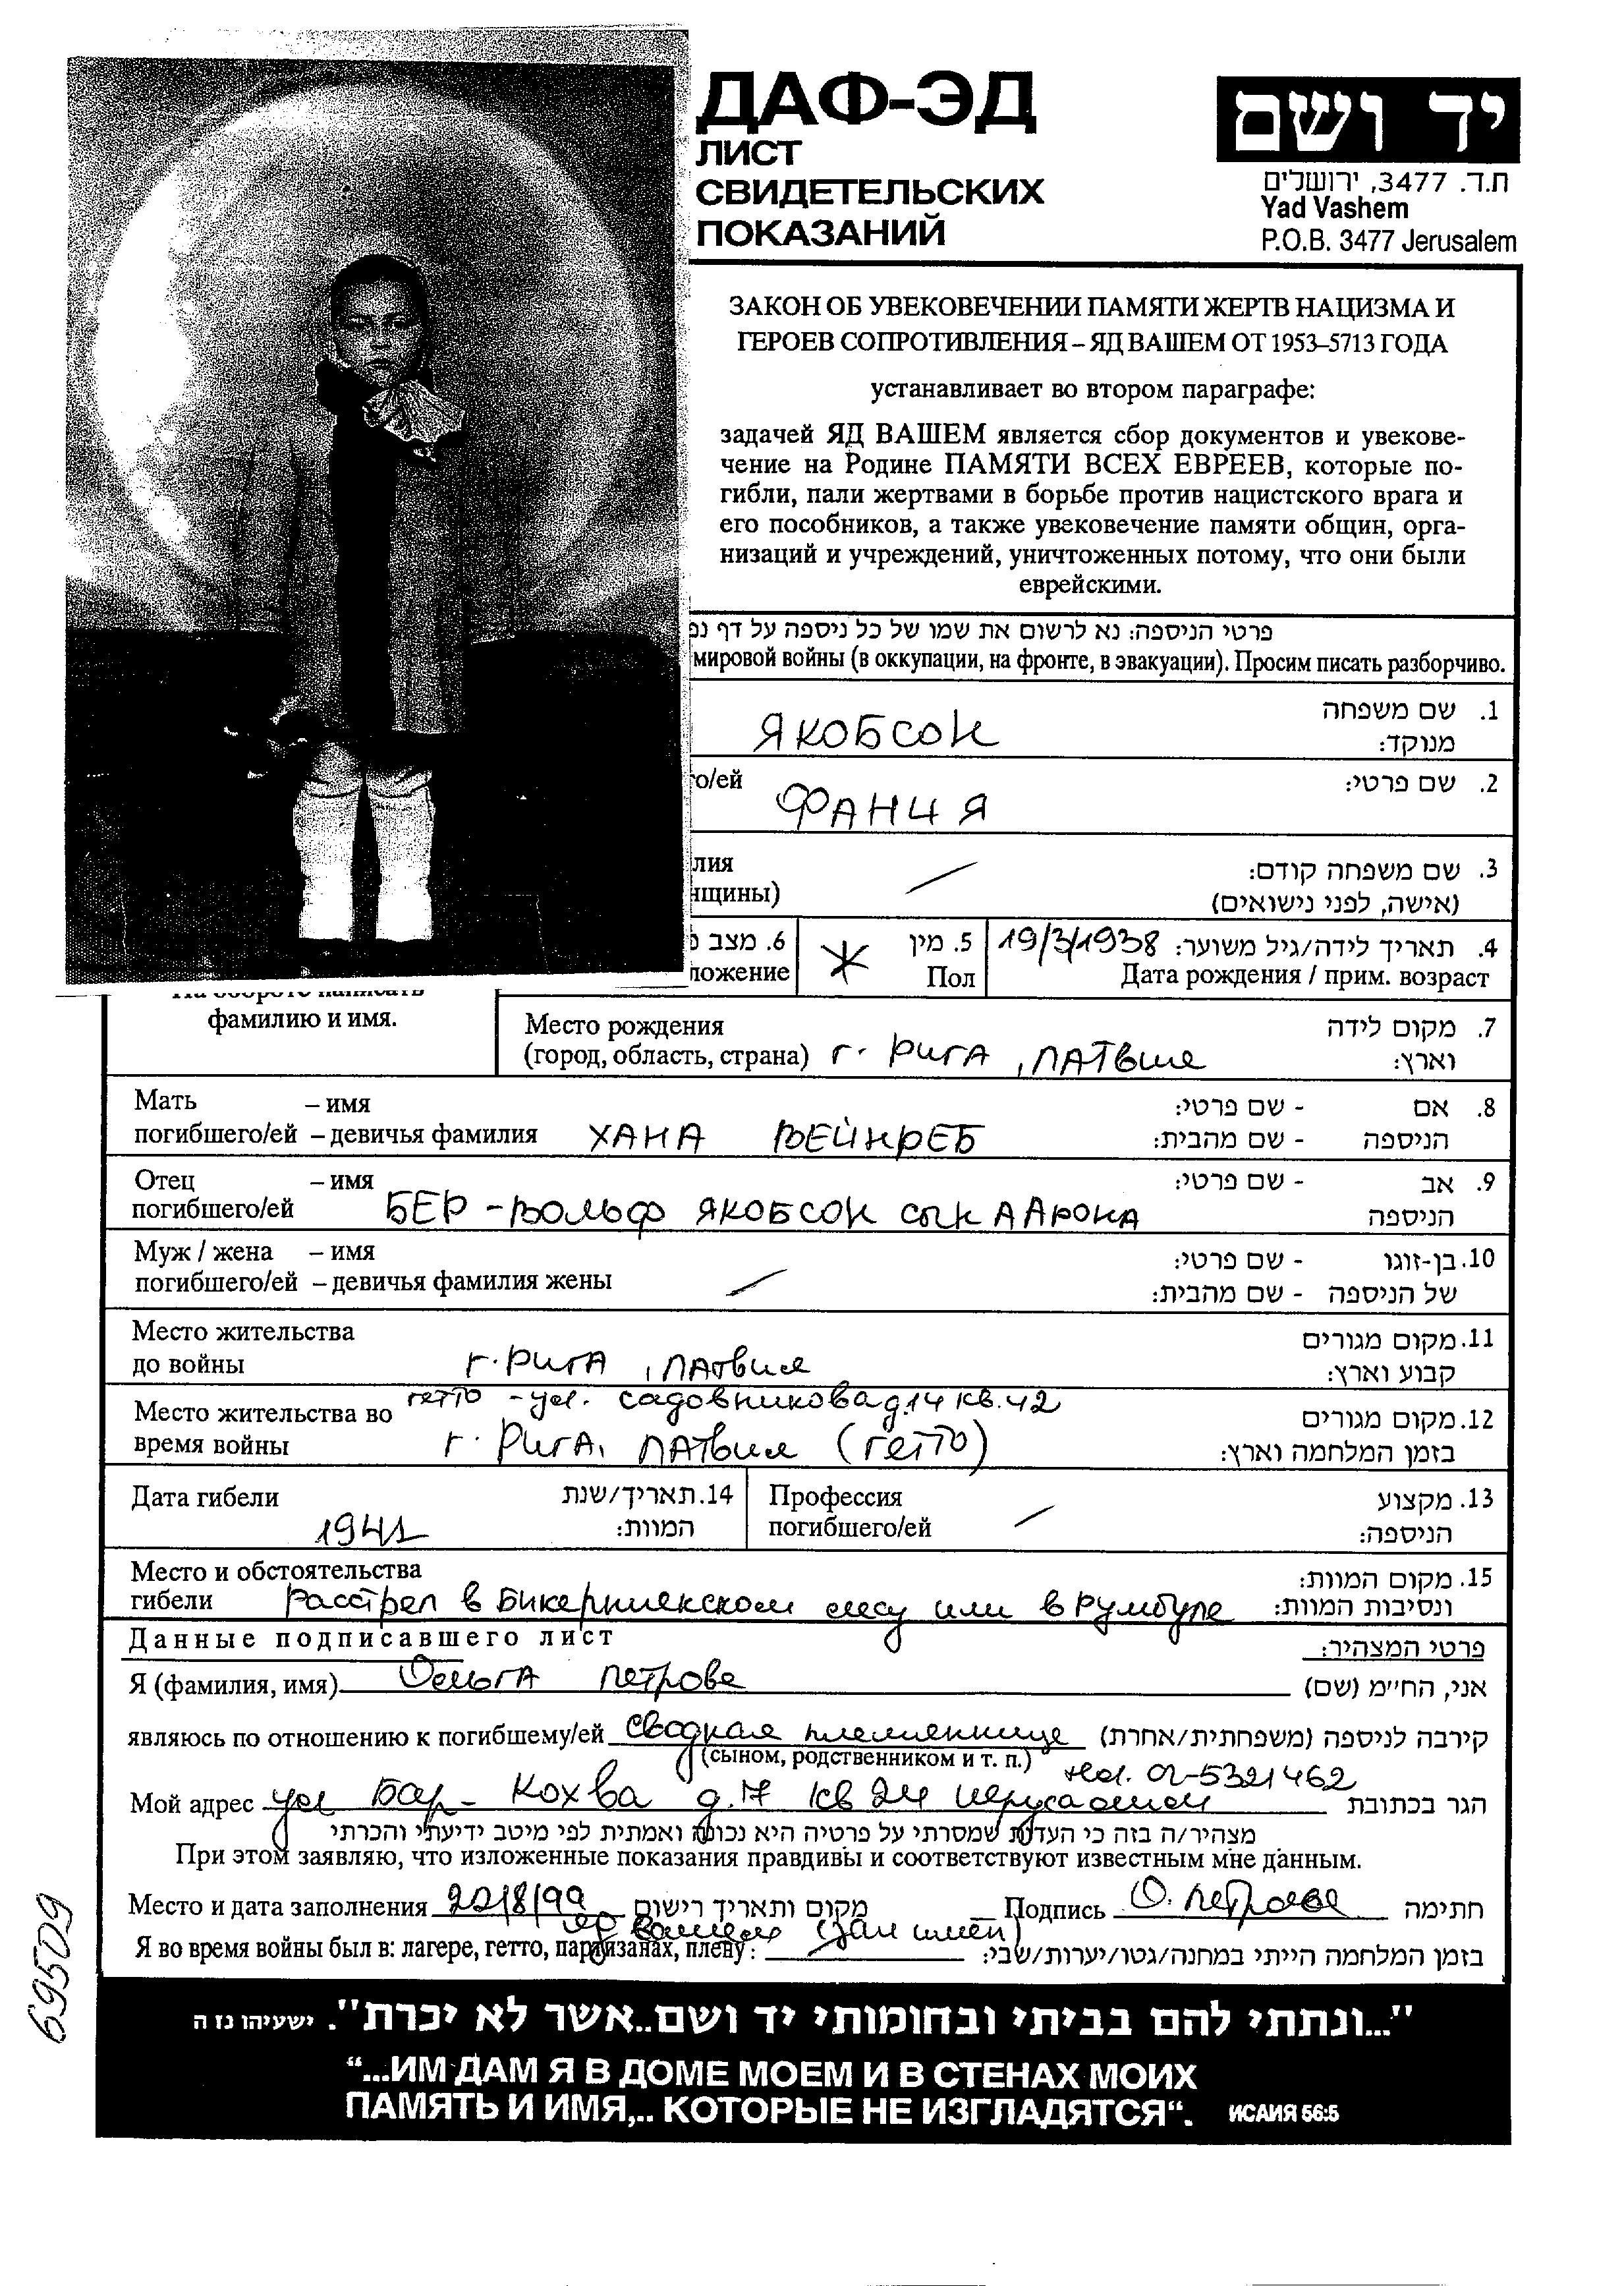 ДАФ-ЭД
ЛИСТ
СВИДЕТЕЛЬСКИХ
ПОКАЗАНИЙ
יד ושם
ת.ד. 3477, ירושלים
Yad Vashem
P.O.B. 3477 Jerusalem
ЗАКОН ОБ УВЕКОВЕЧЕНИИ ПАМЯТИ ЖЕРТВ НАЦИЗМА И
ГЕРОЕВ СОПРОТИВЛЕНИЯ – ЯД ВАШЕМ ОТ 1953–5713 ГОДА
устанавливает во втором параграфе:
задачей ЯД ВАШЕМ является сбор документов и увекове-
чение на Родине ПАМЯТИ ВСЕХ ЕВРЕЕВ, которые по-
гибли, пали жертвами в борьбе против нацистского врага и
его пособников, а также увековечение памяти общин, орга-
низаций и учреждений, уничтоженных потому, что они были
еврейскими.
פרטי הניספה: נא לרשום את שמו של כל ניספה על דף
мировой войны (в оккупации, на фронте, в эвакуации). Просим писать разборчиво.
1. שם משפחה
ЯКОБСОН
מנוקד:
го/ей
2. שם פרטי:
ФАНИЯ
лия
3. שם משפחה קודם:
нщины)
(אישה, לפני נישואים)
6. מצב
5. מין
4. תאריך לידה/גיל משוער: 19/3/1938
ложение
Ж
Пол
Дата рождения / прим. возраст
На обороте написать
фамилию и имя.
Место рождения
7. מקום לידה
(город, область, страна) г. РИГА, ЛАТвия
וארץ:
Мать – имя
8. אם - שם פרטי:
погибшего/ей – девичья фамилия ХАНА ВЕЙНРЕБ
הניספה - שם מהבית:
Отец – имя
9. אב - שם פרטי:
погибшего/ей БЕР-ВОЛЬФ ЯКОБСОН сын ААРОНА
הניספה
Муж / жена – имя
10. בן-זוגו - שם פרטי:
погибшего/ей – девичья фамилия жены
של הניספה - שם מהבית:
Место жительства
11. מקום מגורים
до войны г. РИГА, ЛАТвия
קבוע וארץ:
гетто - ул. Садовникова д.14 кв.42
Место жительства во
12. מקום מגורים
время войны г. РИГА, ЛАТвия (гетто)
בזמן המלחמה וארץ:
Дата гибели
14. תאריך/שנת
Профессия
13. מקצוע
1941
המוות:
погибшего/ей
הניספה:
Место и обстоятельства
15. מקום המוות:
гибели Расстрел в Бикерниекском лесу или в Румбуле
ונסיבות המוות:
Данные подписавшего лист
פרטי המצהיר:
Я (фамилия, имя) Ольга Петрова
אני, הח״מ (שם)
являюсь по отношению к погибшему/ей сводная племянница
קירבה לניספה (משפחתית/אחרת)
(сыном, родственником и т. п.)
тел. 02-5321462
Мой адрес ул Бар-Кохва д.17 кв Иерусалим
הגר בכתובת
מצהיר/ה בזה כי העדות שמסרתי על פרטיה היא נכונה ואמתית לפי מיטב ידיעתי והכרתי
При этом заявляю, что изложенные показания правдивы и соответствуют известным мне данным.
Место и дата заполнения 22/8/99
מקום ותאריך רישום
Подпись О. Петрова
חתימה
яд вашем (зал имён)
Я во время войны был в: лагере, гетто, партизанах, плену:
בזמן המלחמה הייתי במחנה/גטו/יערות/שבי:
69509
"...ונתתי להם בביתי ובחומותי יד ושם..אשר לא יכרת". ישעיהו נז ה
“...ИМ ДАМ Я В ДОМЕ МОЕМ И В СТЕНАХ МОИХ
ПАМЯТЬ И ИМЯ,.. КОТОРЫЕ НЕ ИЗГЛАДЯТСЯ“. ИСАИЯ 56:5